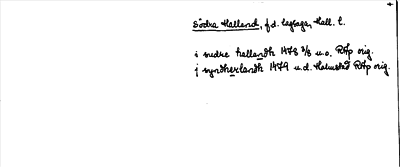 Södra Halland, f.d. lagsaga, Hall. l.
i nedre hallandh 1473 3/8 u.o. RAp orig.
j nyndherlandh 1479 u.d. Halmstad RAp orig.